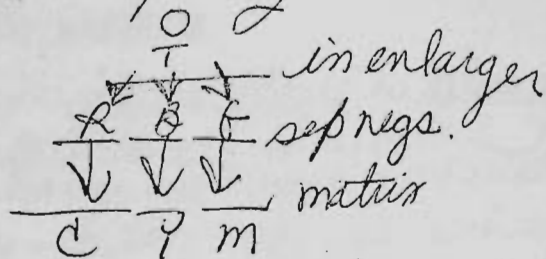 in enlarger
R B G sep negs.
matrix
C Y M